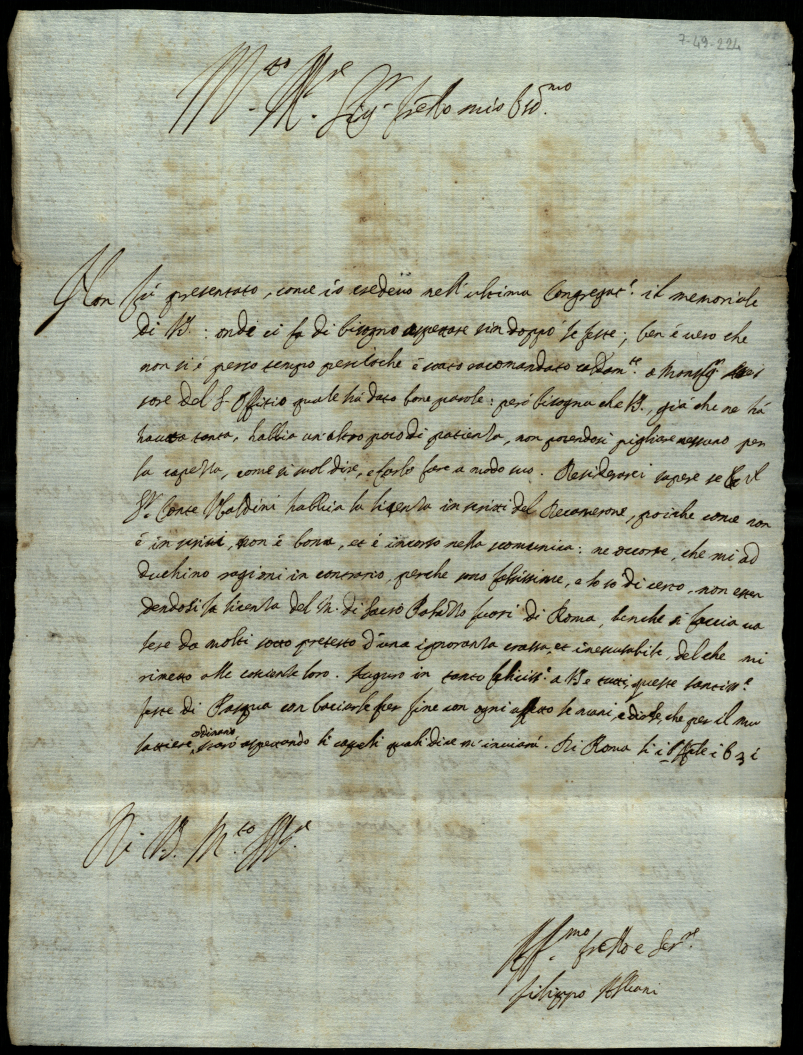 7-49-224
M.to Ill.re Sig.r frello mio oss.mo
Non fù presentato, come io credevo nell'ultima Congregat.e il memoriale
di V.S.: onde ci fa di bisogno aspettare sin doppò le feste; ben è vero che
non si è perso tempo perilche è stato racomandato caldam.te a Mons.r Asses
sore del S. Offitio quale hà dato bone parole: però bisogna che V.S., già che ne hà
hauuta tanta, habbia un altro poco di patienza, non potendosi pigliare nessuno per
la capezza, come si suol dire, e farlo fare a modo suo. Desiderarei sapere se il
S.r Conte Ubaldini habbia la licenza in scritti del Decamerone, poiche come non
è in scritti, non è bona, et è incorso nella scomunica: ne occorre, che mi ad
duchino ragioni in contrario, perche sono falsissime, e lo so di certo, non esten
dendosi la licenza del M. di Sacro Palazzo fuori di Roma, benche si faccia ua
lere da molti sotto pretesto d'una ignoranza crassa, et inescusabile, del che mi
rimetto alle coscienze loro. Auguro in tanto feliciss.e a V.S. e tutti queste santiss.e
feste di Pasqua con baciarle per fine con ogni affetto le mani, e dirle, che per il mu
lattiere ordinario starò aspettando li capelli quali dice m'inuiarà. Di Roma li
Di V.S. M.to Ill.re
Aff.mo frello e Ser.re
Filippo